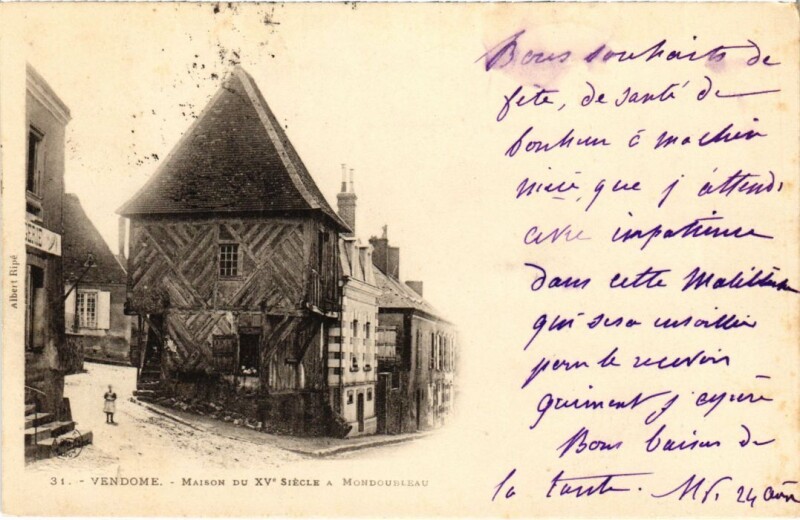 Bons souhaits de
fête, de santé de
bonheur à ma chère
nièce, que j'attends
avec impatience
dans cette
qui sera
pour le recevoir
gaiment j'espère
Bons baisers de
la tante. 24
Albert Ripé
31. - VENDOME. - MAISON DU XVe SIÈCLE A MONDOUBLEAU